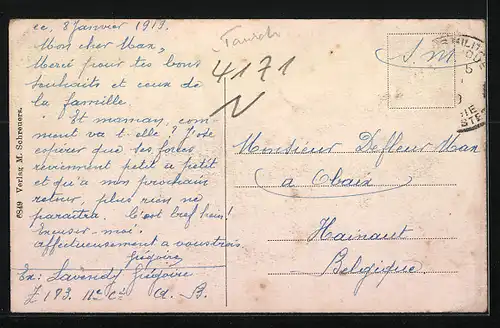 ce, 8 Janvier 1919.
Mon cher Max,
Merci pour tes bons
souhaits et ceux de
la famille.
Et maman, com-
ment va t-elle? J'ose
espérer que les forces
reviennent petit à petit
et qu'à mon prochain
retour, plus rien ne
paraîtra. C'est bref hein!
Excuser-moi.
affectueusement à vous trois.
Grégoire
Ex: Lavendy Grégoire
Z 173. 11e Cie A. B.
6849 Verlag M. Schreuers.
Tausch
4171
S. M.
MILIT
Monsieur Defleur Max
à Obaix
Hainaut
Belgique